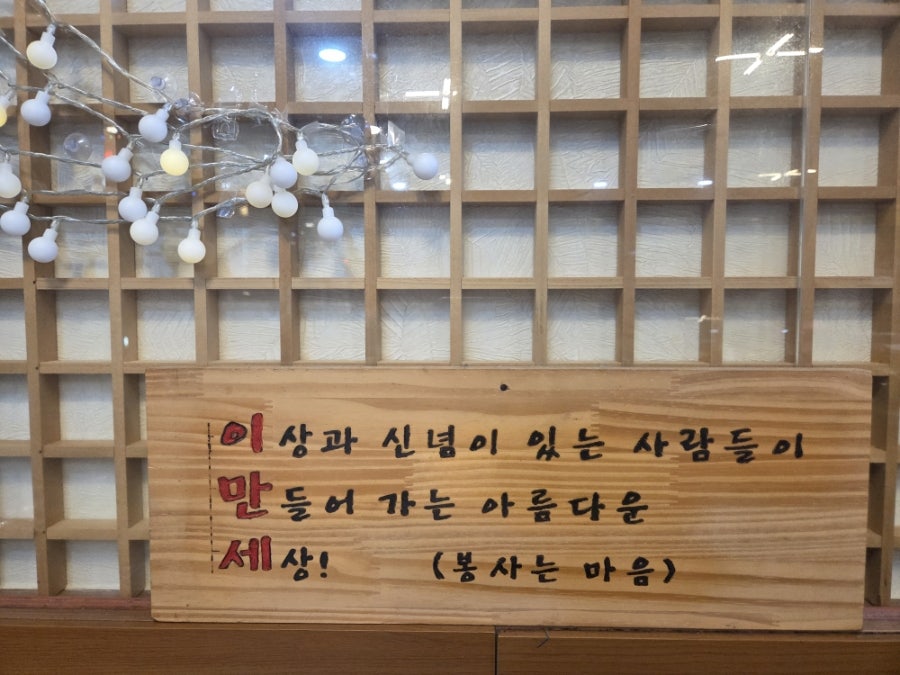 이상과 신념이 있는 사람들이
만들어 가는 아름다운
세상! (봉사는 마음)